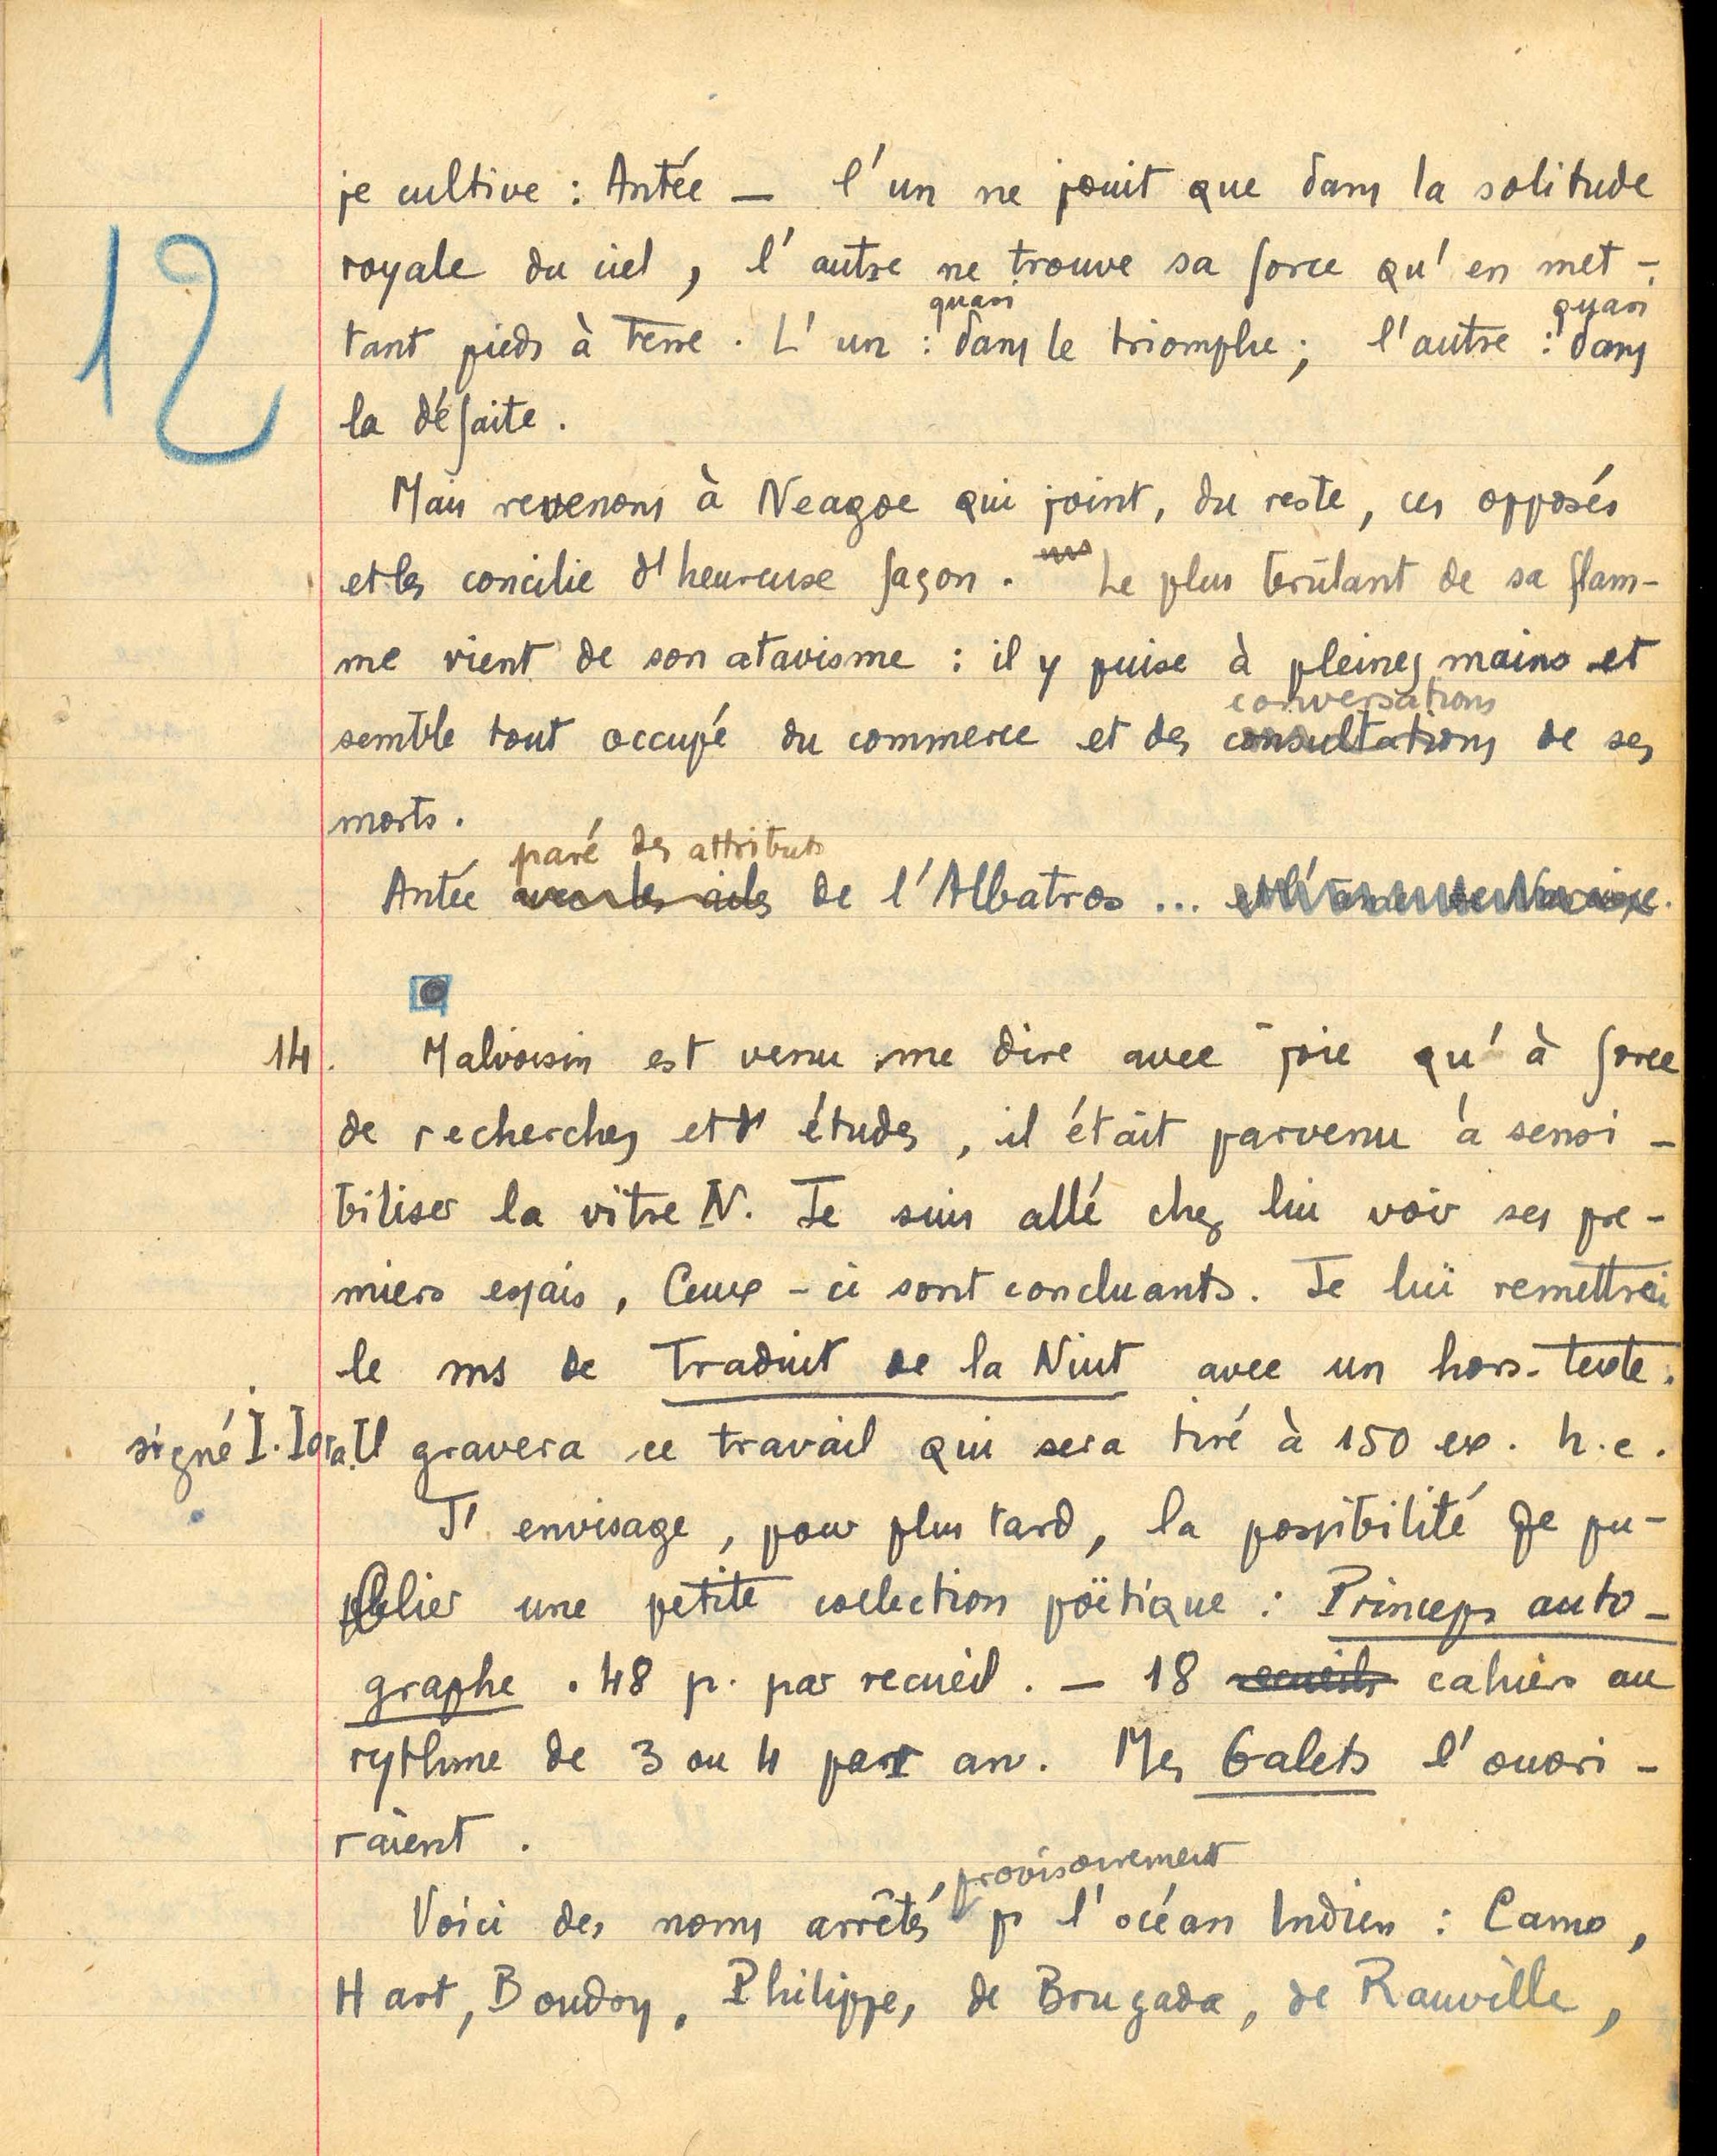 12
je cultive : Antée — l'un ne jouit que dans la solitude
royale du ciel, l'autre ne trouve sa force qu'en met-
quasi quasi
tant pieds à terre. L'un : dans le triomphe ; l'autre : dans
la défaite.
Mais revenons à Neagoe qui joint, du reste, ces opposés
et les concilie d'heureuse façon. Le plus brûlant de sa flam-
me vient de son atavisme : il y puise à pleines mains et
conversations
semble tout occupé du commerce et des consultations de ses
morts.
paré des attributs
Antée avec les ailes de l'Albatros ... et l'âme de Narcisse.
14. Malvoisin est venu me dire avec joie qu'à force
de recherches et d'études, il était parvenu à sensi-
biliser la vitre N. Je suis allé chez lui voir ses pre-
miers essais, Ceux-ci sont concluants. Je lui remettrai
le ms de Traduit de la Nuit avec un hors-texte.
signé I. Iora. Il gravera ce travail qui sera tiré à 150 ex. h.c.
J'envisage, pour plus tard, la possibilité de pu-
blier une petite collection poëtique : Princeps auto-
graphe. 48 p. par recueil. — 18 recueils cahiers au
rythme de 3 ou 4 par an. Mes Galets l'ouvri-
raient.
, provisoirement
Voici des noms arrêtés p l'océan Indien : Camo,
Hart, Boudry, Philippe, de Brugada, de Rauville,